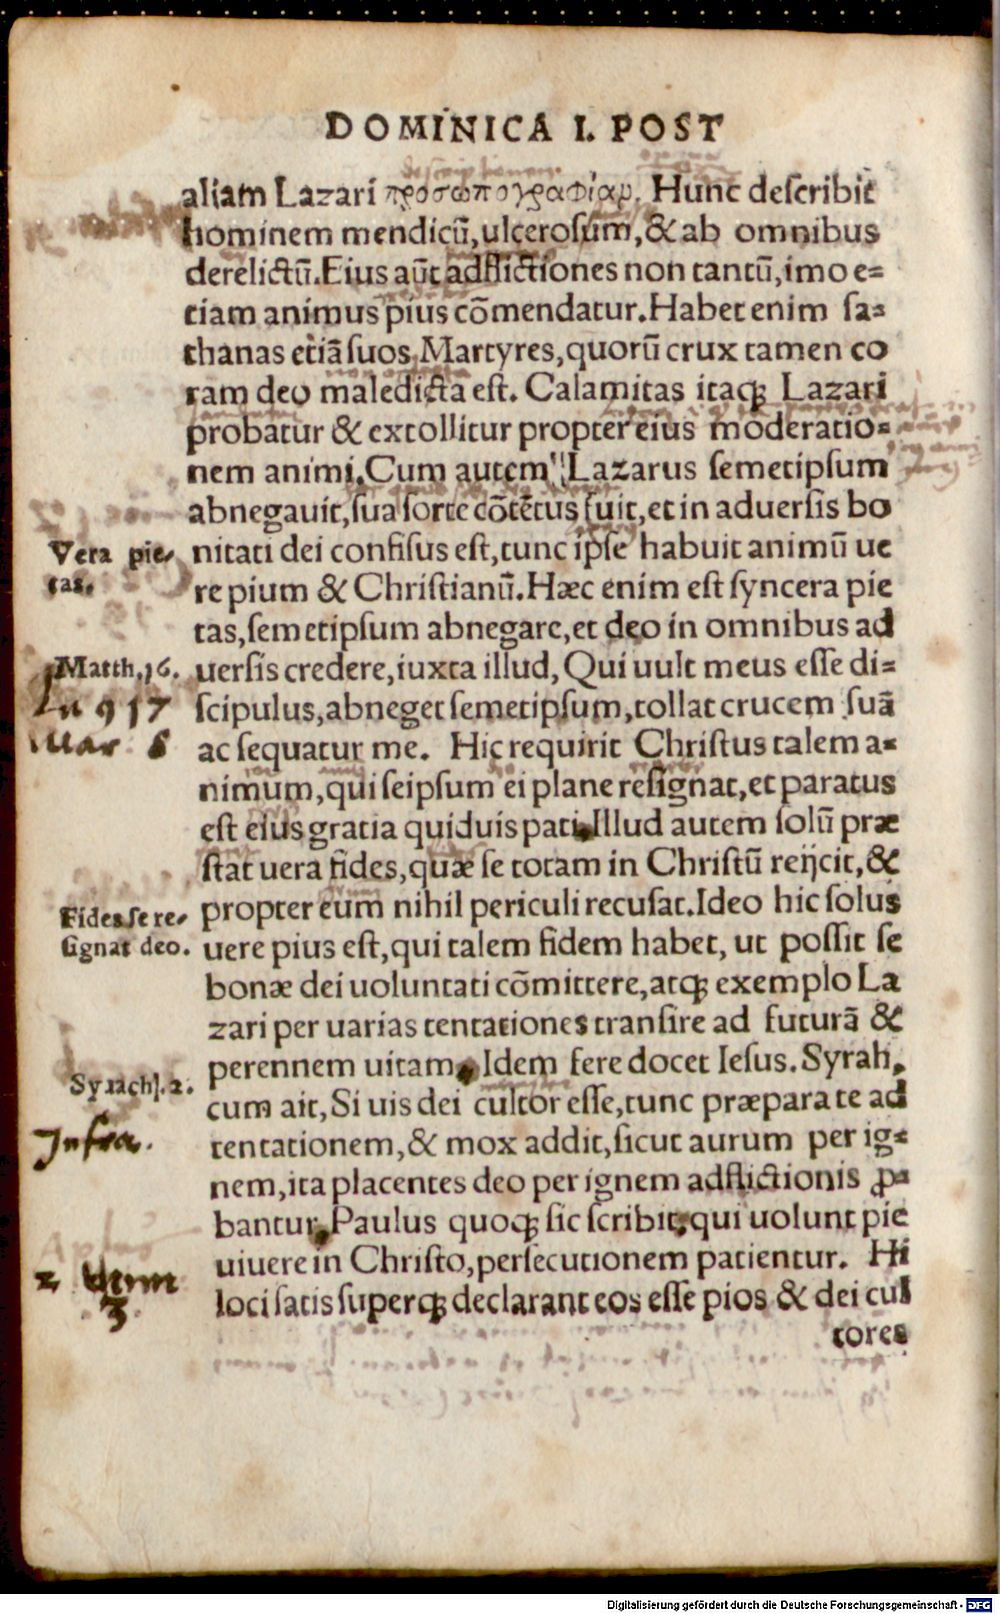 DOMINICA I. POST
aliam Lazari προσωπογραφίαν. Hunc deſcribit
hominem mendicū, ulceroſum, & ab omnibus
derelictū. Eius aūt adflictiones non tantū, imo e=
tiam animus pius cōmendatur. Habet enim ſa=
thanas etiā ſuos Martyres, quorū crux tamen co
ram deo maledicta eſt. Calamitas itaq; Lazari
probatur & extollitur propter eius moderatio=
nem animi. Cum autem Lazarus ſemetipſum
abnegauit, ſua ſorte cōtētus fuit, et in aduerſis bo
Vera pie-
tas.
nitati dei confiſus eſt, tunc ipſe habuit animū ue
re pium & Chriſtianū. Hæc enim eſt ſyncera pie
tas, ſemetipſum abnegare, et deo in omnibus ad
Matth. 16.
Lu 9 17
Mar 8
uerſis credere, iuxta illud, Qui uult meus eſſe di=
ſcipulus, abneget ſemetipſum, tollat crucem ſuā
ac ſequatur me. Hic requirit Chriſtus talem a=
nimum, qui ſeipſum ei plane reſignat, et paratus
eſt eius gratia quiduis pati. Illud autem ſolū præ
ſtat uera fides, quæ ſe totam in Chriſtū reijcit, &
Fides ſe re-
ſignat deo.
propter eum nihil periculi recuſat. Ideo hic ſolus
uere pius eſt, qui talem fidem habet, ut poſſit ſe
bonæ dei uoluntati cōmittere, atq; exemplo La
zari per uarias tentationes tranſire ad futurā &
perennem uitam. Idem fere docet Ieſus. Syrah,
Syrach. 2.
Infra.
cum ait, Si uis dei cultor eſſe, tunc præpara te ad
tentationem, & mox addit, ſicut aurum per ig=
nem, ita placentes deo per ignem adflictionis ꝓ=
bantur. Paulus quoq; ſic ſcribit, qui uolunt pie
2 Utim
3
uiuere in Chriſto, perſecutionem patientur. Hi
loci ſatis ſuperq; declarant eos eſſe pios & dei cul
tores
Digitalisierung gefördert durch die Deutsche Forschungsgemeinschaft - DFG